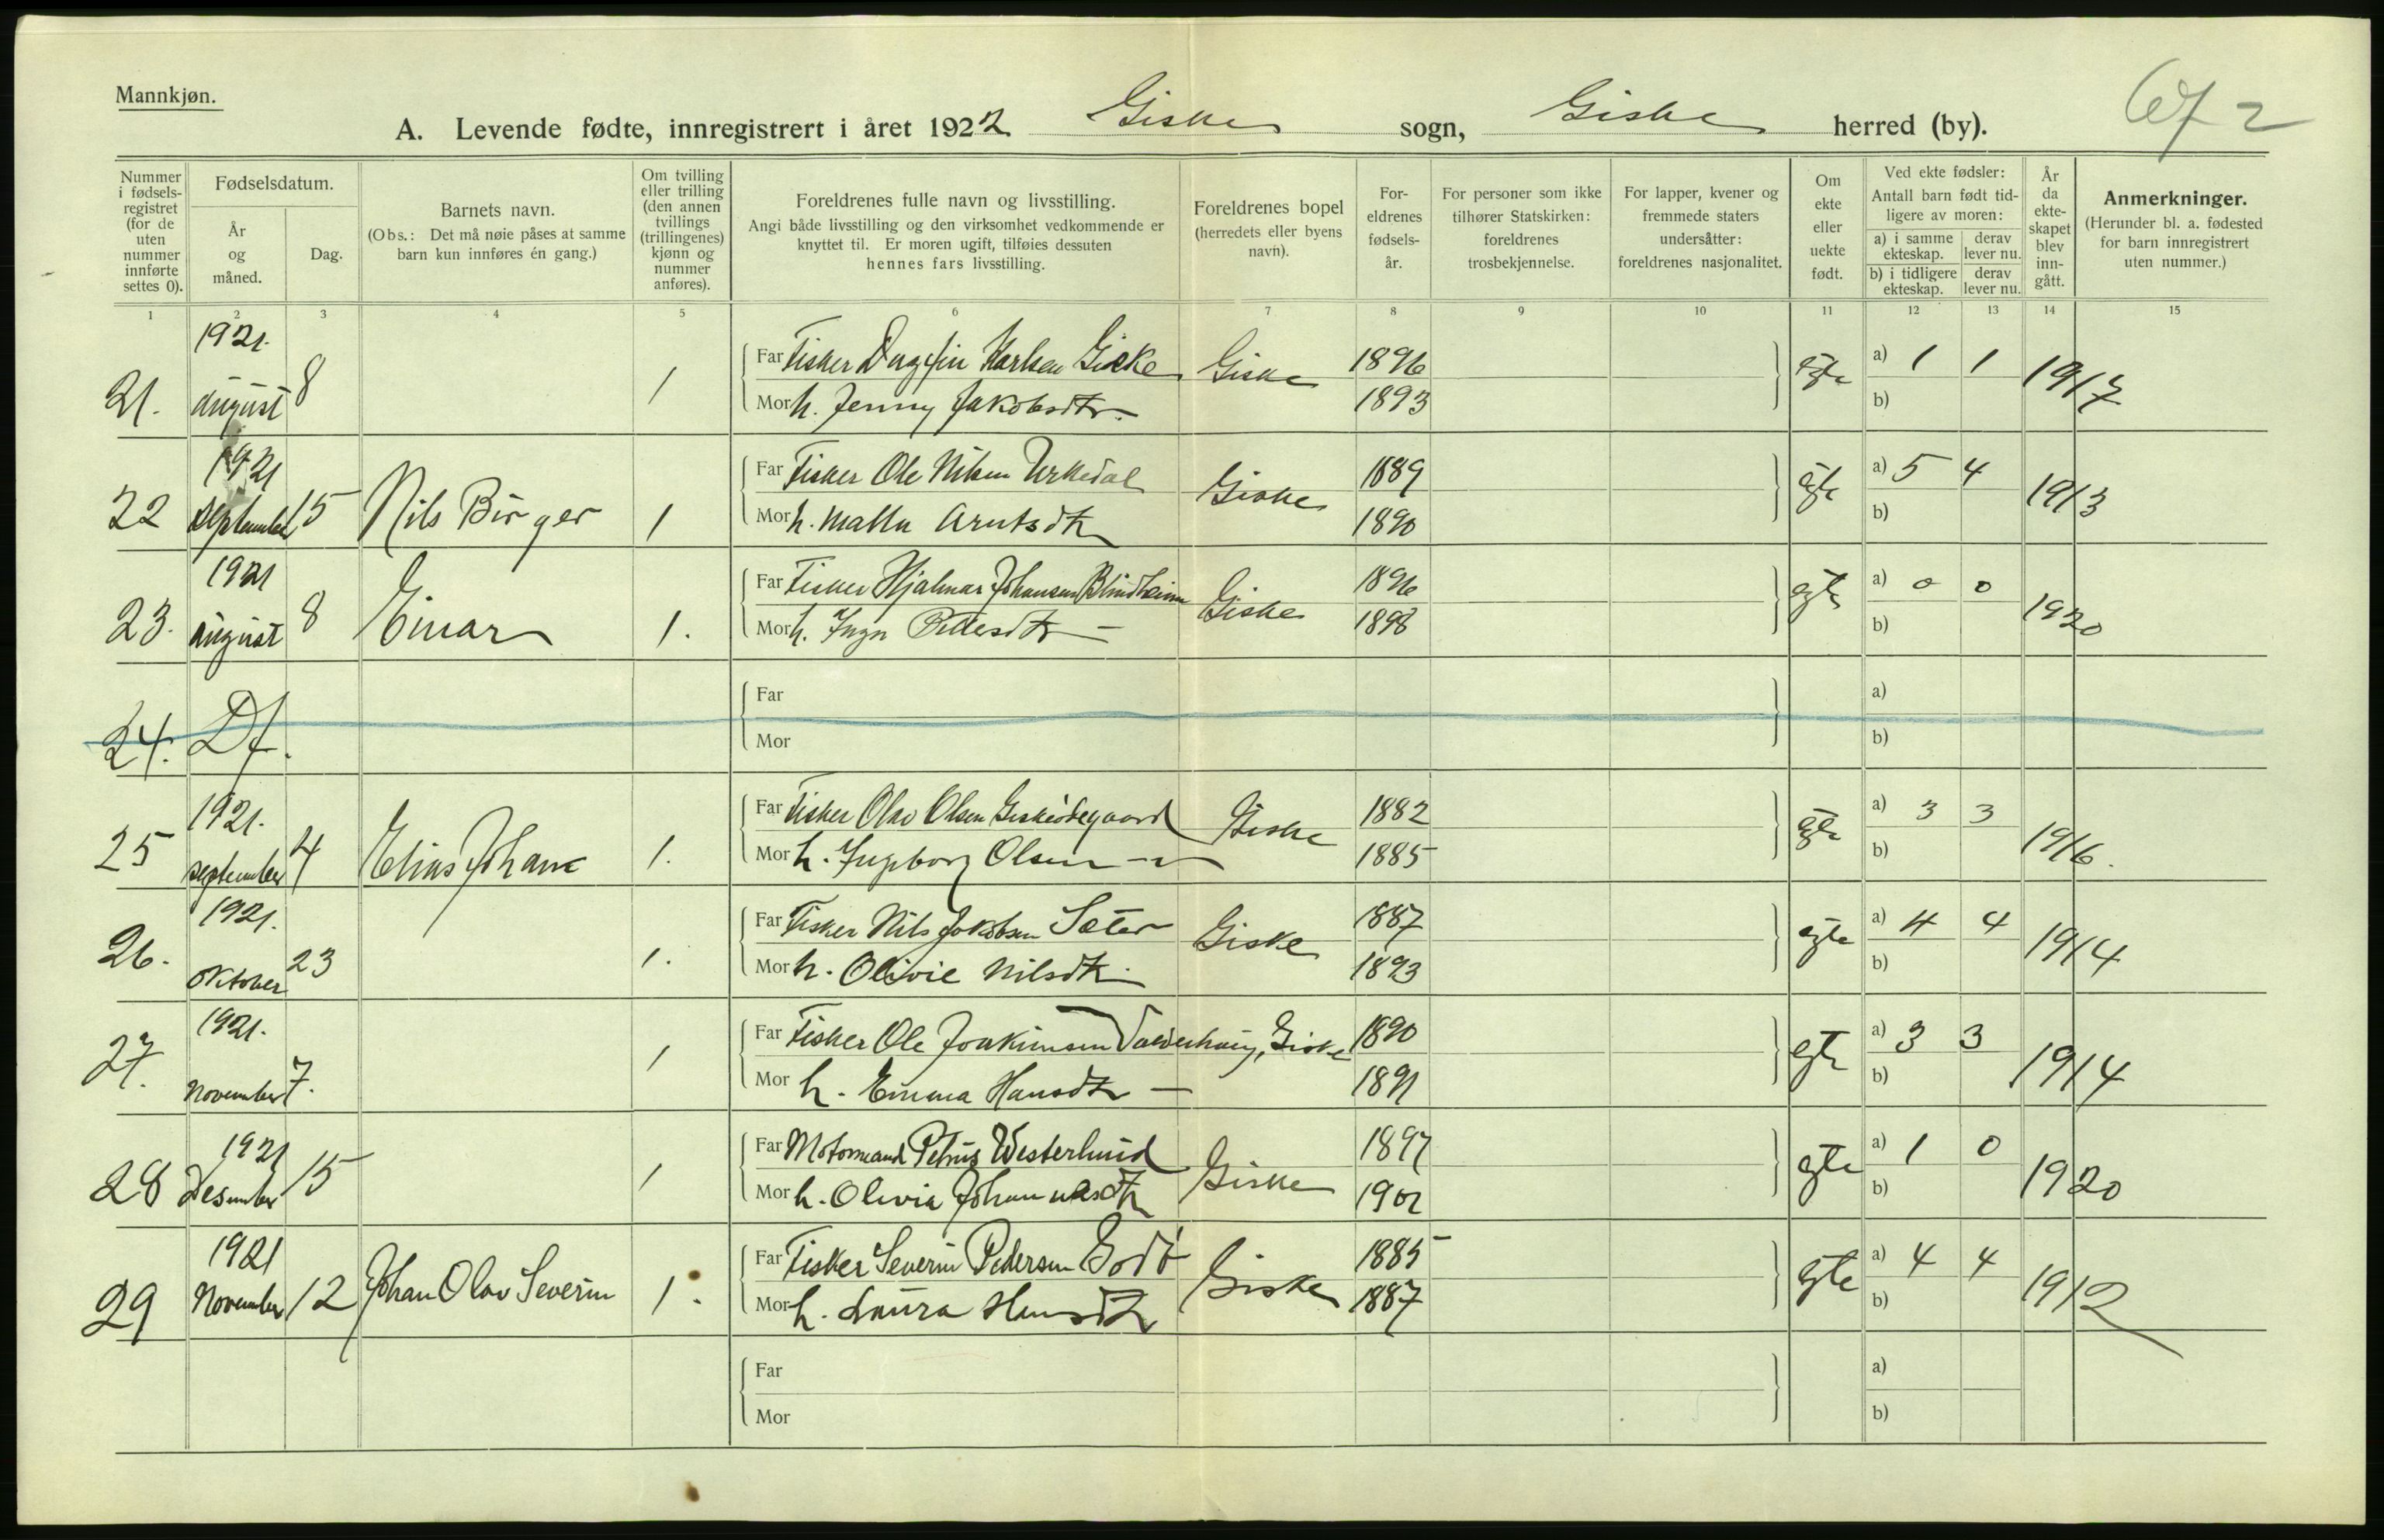 Mannkjøn.
672
A. Levende fødte, innregistrert i året 1922 Giske sogn, Giske herred (by).
Nummer i fødsels-registret (for de uten nummer innførte settes 0).
Fødselsdatum.
År og måned.
Dag.
Barnets navn.
(Obs.: Det må nøie påses at samme barn kun innføres én gang.)
Om tvilling eller trilling (den annen tvillings (trillingenes) kjønn og nummer anføres).
Foreldrenes fulle navn og livsstilling.
Angi både livsstilling og den virksomhet vedkommende er knyttet til. Er moren ugift, tilføies dessuten hennes fars livsstilling.
Foreldrenes bopel (herredets eller byens navn).
For-eldrenes fødsels-år.
For personer som ikke tilhører Statskirken: foreldrenes trosbekjennelse.
For lapper, kvener og fremmede staters undersåtter: foreldrenes nasjonalitet.
Om ekte eller uekte født.
Ved ekte fødsler:
Antall barn født tid-ligere av moren:
a) i samme ekteskap.
derav lever nu.
b) i tidligere ekteskap.
derav lever nu.
År da ekte-skapet blev inn-gått.
Anmerkninger.
(Herunder bl. a. fødested for barn innregistrert uten nummer.)
1 2 3 4 5 6 7 8 9 10 11 12 13 14 15
21. 1921. august 8 1
Far Fisker Dagfin Karlsen Giske Giske 1896 egte a) 1 1 1917
Mor h. Jenny Jakobsdtr. 1893 b)
22 1921 september 15 Nils Birger 1
Far Fisker Ole Nilsen Urkedal Giske 1889 egte a) 5 4 1913
Mor h. Arntsdtr 1890 b)
23. 1921 august 8 Einar 1.
Far Fisker Hjalmar Johansen Blindheim Giske 1896 egte a) 0 0 1920
Mor h. Inga Pettersdtr — 1898 b)
24. Df.
Far a)
Mor b)
25 1921. september 4 Elias Johan 1.
Far Fisker Olav Olsen Giskeødegaard Giske 1882 egte a) 3 3 1916.
Mor h. Ingeborg Olsen 1885 b)
26. 1921. Oktober 23 1.
Far Fisker Nils Jakobsen Sæter Giske 1887 egte a) 4 4 1914
Mor h. Olivie Nilsdtr. 1893 b)
27. 1921. November 7. 1
Far Fisker Ole Joakimsen Valderhaug, Giske 1890 egte a) 3 3 1914
Mor h. Emma Hansdtr — 1891 b)
28 1921 Desember 15 1
Far Motormand Petrus Westerlund Giske 1897 egte a) 1 0 1920
Mor h. Olivia Johannesdtr b)
29 1921 November 12 Johan Olav Severin 1.
Far Fisker Severin Pedersen Godø Giske 1885 egte a) 4 4 1912
Mor h. Laura Hansdtr 1887 b)
Far a)
Mor b)